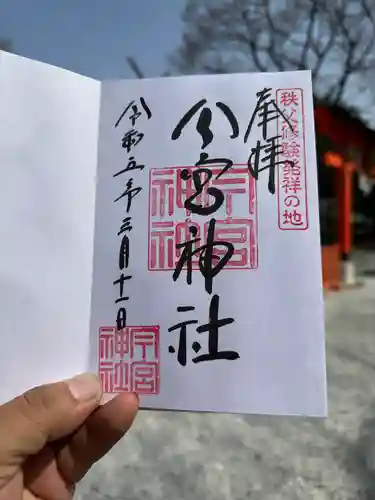 秩父修験発祥の地
奉拝
今宮神社
今宮
神社
令和五年三月十一日
今宮
神社